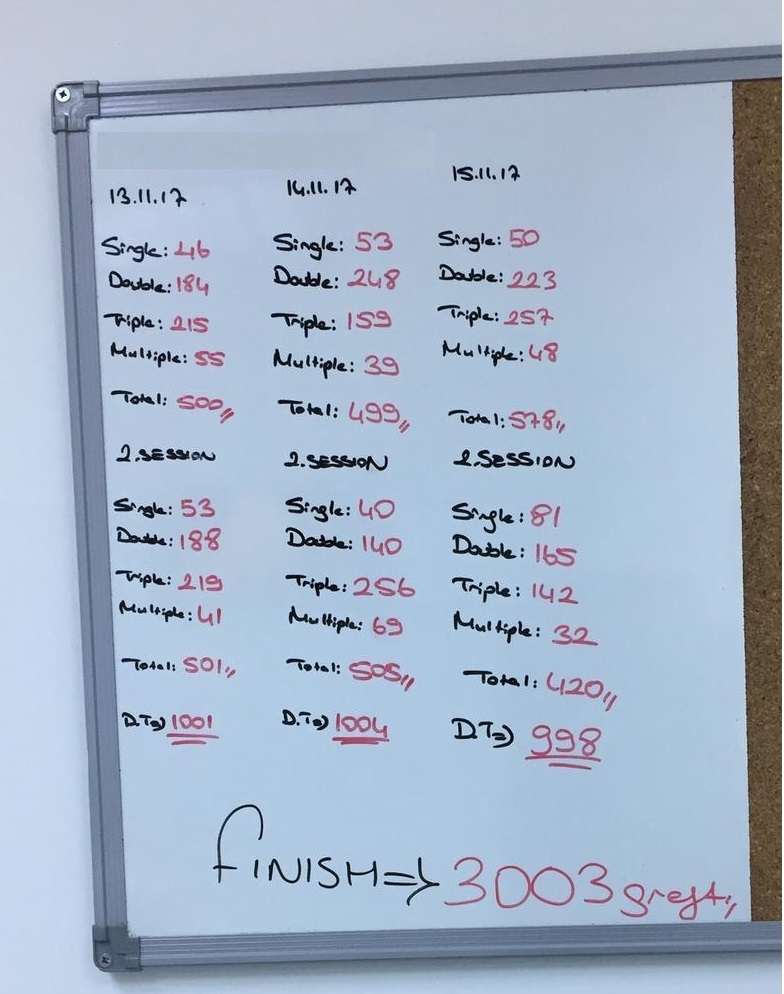 13.11.17
Single: 46
Double: 184
Triple: 215
Multiple: 55
Total: 500,,
2.SESSION
Single: 53
Double: 188
Triple: 219
Multiple: 41
Total: 501,,
D.T=) 1001
14.11.17
Single: 53
Double: 248
Triple: 159
Multiple: 39
Total: 499,,
2.SESSION
Single: 40
Double: 140
Triple: 256
Multiple: 69
Total: 505,,
D.T=) 1004
15.11.17
Single: 50
Double: 223
Triple: 257
Multiple: 48
Total: 578,,
2.SESSION
Single: 81
Double: 165
Triple: 142
Multiple: 32
Total: 420,,
D.T=) 998
FINISH=> 3003 greft,,